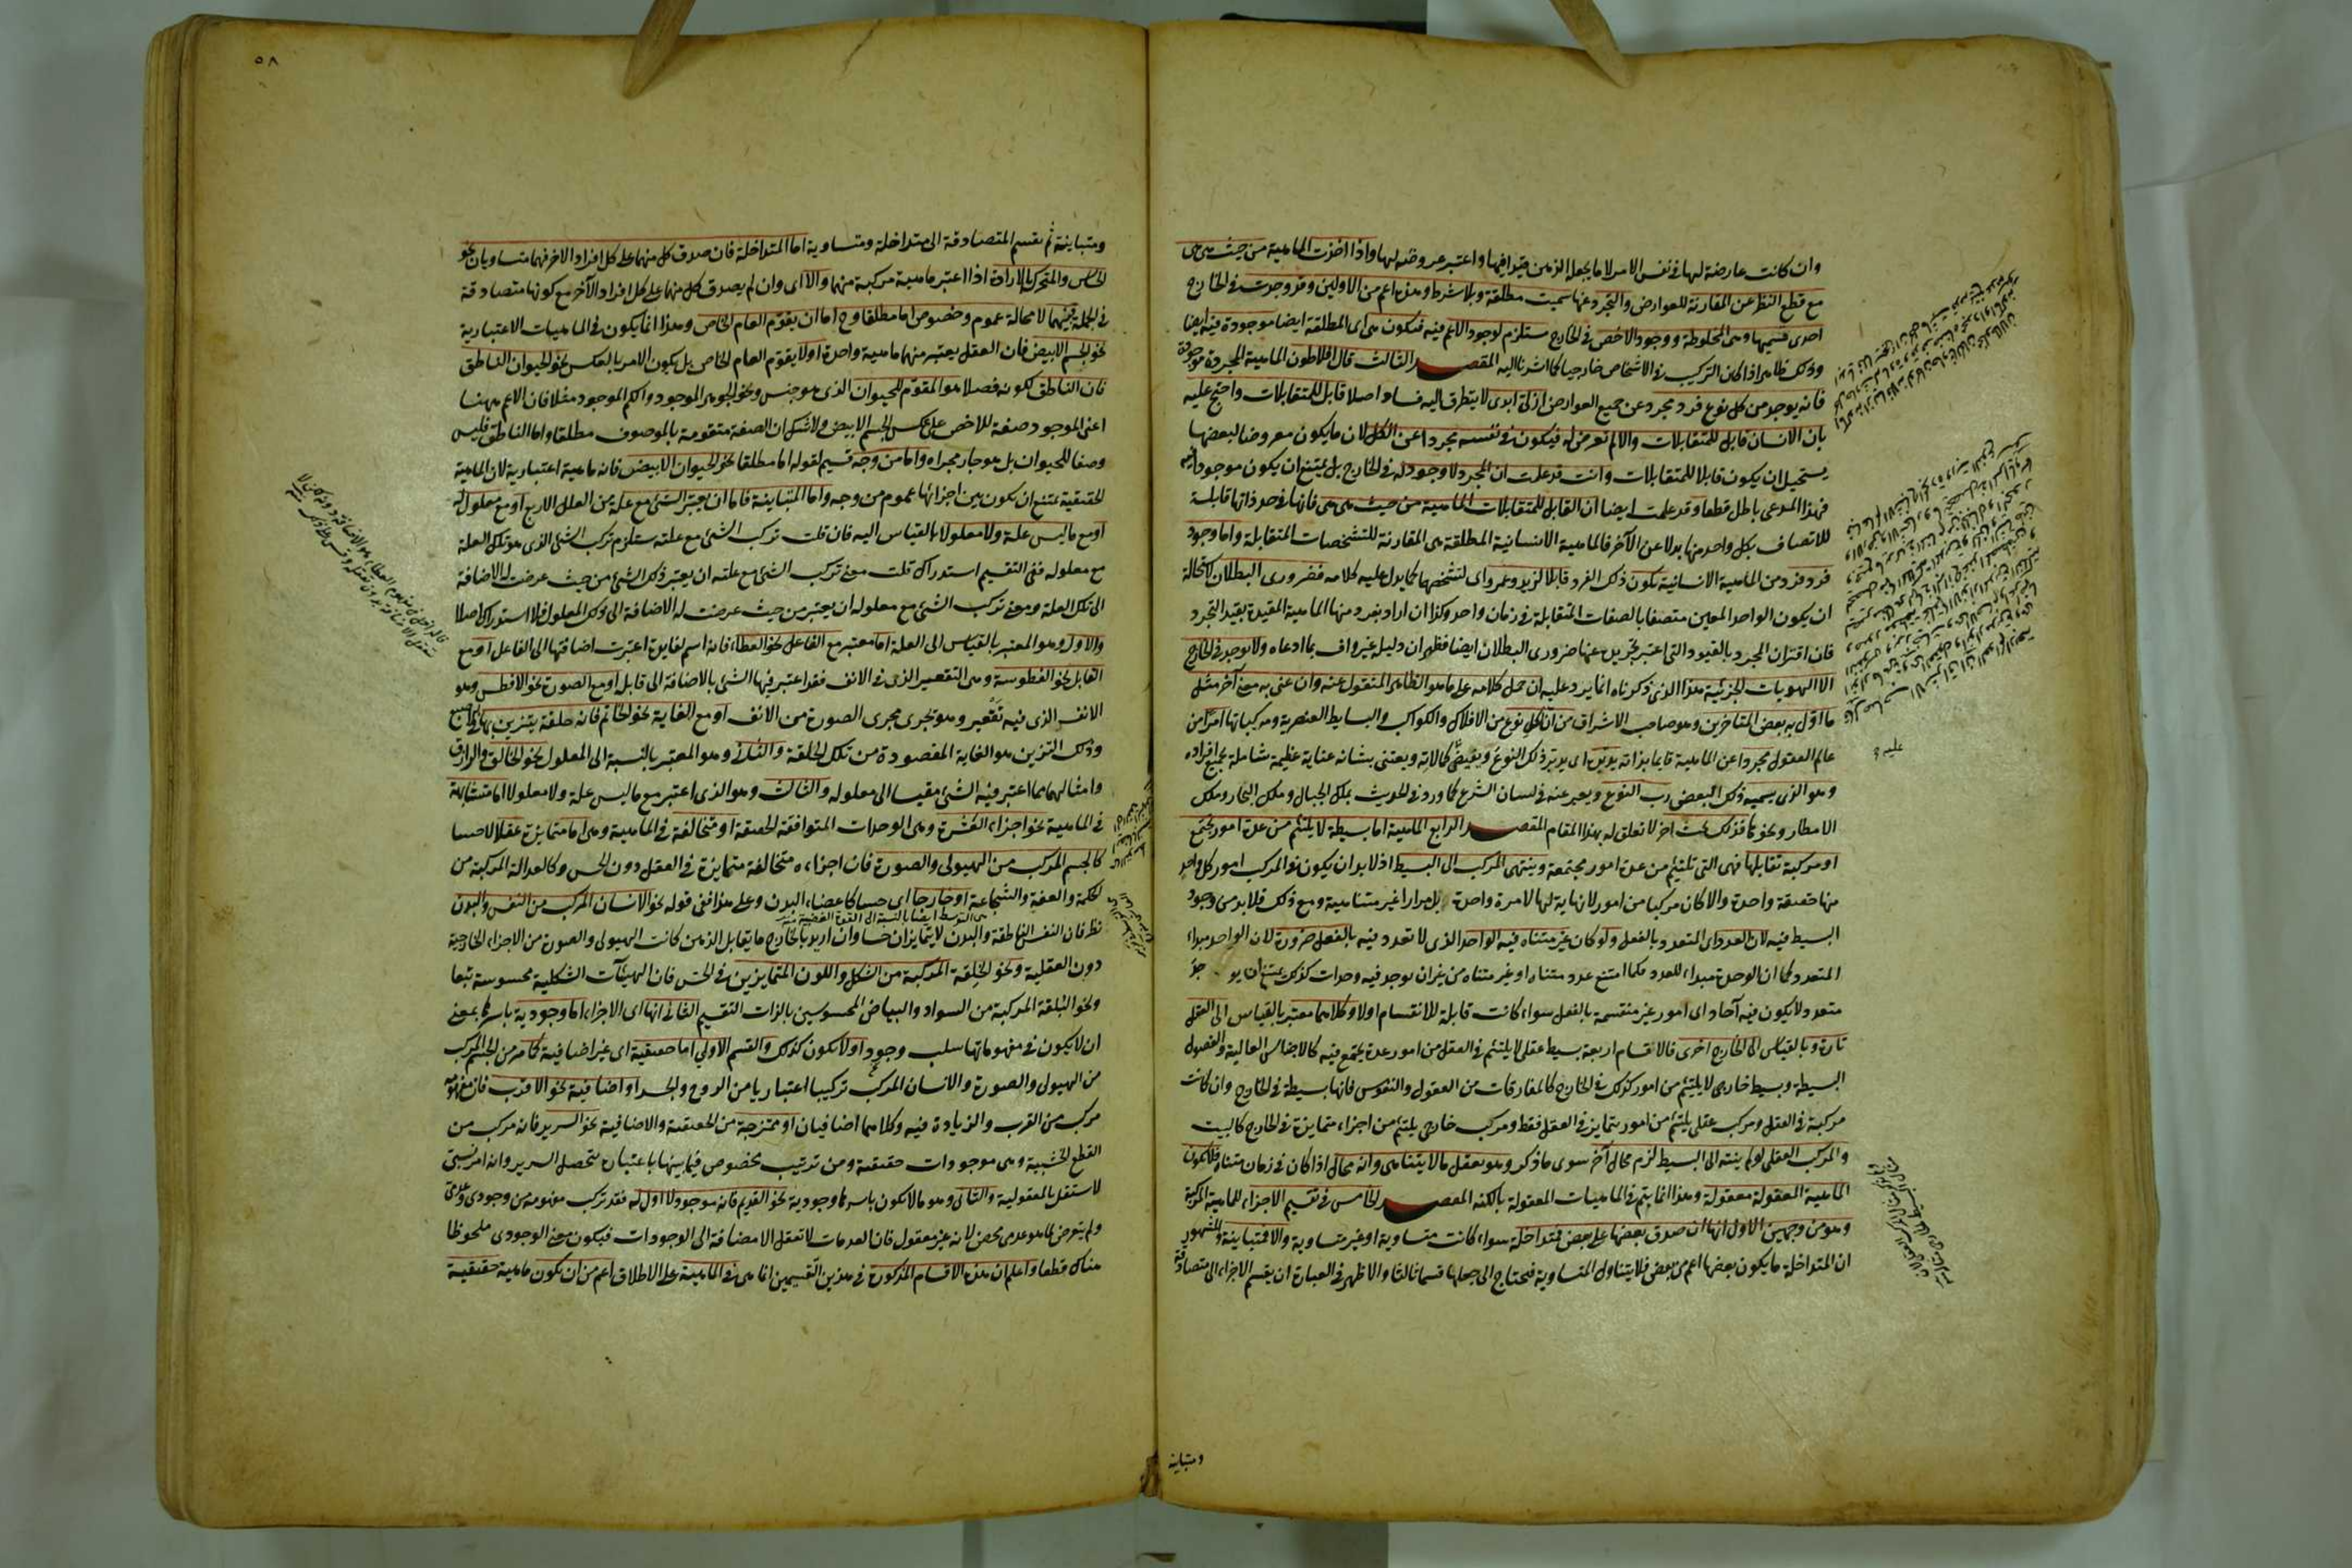 وان كانت عارضة لها فى نفس الامر لا ما يجعله الذهن قيدا فيها واعتبر عروضه لها واذا اخذت الماهية من حيث هى هى
مع قطع النظر عن المقارنة للعوارض والتجرد عنها سميت مطلقة وبلا شرط وهذه اعم من الاولين وقد وجدت فى الخارج
احدى قسميها وهى المخلوطة ووجود الاخص فى الخارج مستلزم لوجود الاعم فيه فتكون هى اى المطلقة ايضا موجودة فيه ايضا
وذلك ظاهر اذا كان التركيب فى الاشخاص خارجيا كما اشرنا اليه المقصد الثالث قال افلاطون الماهية المجردة موجودة
فانه يوجد من كل نوع فرد مجرد عن جميع العوارض ازلى ابدى لا يتطرق اليه فساد اصلا قابل للمتقابلات واحتج عليه
بان الانسان قابل للمتقابلات والا لم تعرض له فيكون فى نفسه مجردا عن الكل لان ما يكون معروضا لبعضها
يستحيل ان يكون قابلا للمتقابلات وانت قد علمت ان المجرد لا وجود له فى الخارج بل يمتنع ان يكون موجودا فيه
فهذا المدعى باطل قطعا وقد علمت ايضا ان القابل للمتقابلات الماهية من حيث هى هى فانها فى حد ذاتها قابلة
للاتصاف بكل واحد منها بدلا عن الآخر فالماهية الانسانية المطلقة هى المقارنة للتشخصات المتقابلة واما وجود
فرد فرد من الماهية الانسانية يكون ذلك الفرد قابلا لزيد وعمرو اى لتشخصها كما يدل عليه كلامه فضرورى البطلان لاستحالة
ان يكون الواحد المعين متصفا بالصفات المتقابلة فى زمان واحد وكذا ان اراد بفرد منها الماهية المقيدة بقيد التجرد
فان اقتران المجرد بالقيود التى اعتبر تجريده عنها ضرورى البطلان ايضا فظهر ان دليله غير واف بما ادعاه ولا يوجد فى الخارج
الا الهويات الجزئية هذا الذى ذكرناه انما يرد عليه ان حمل كلامه على ما هو الظاهر المنقول عنه وان عنى به معنى آخر مثل
ما اوّل به بعض المتاخرين وهو صاحب الاشراق من ان لكل نوع من الافلاك والكواكب والبسايط العنصرية ومركباتها امرا من
عالم العقول مجردا عن الماهية قايما بذاته يدبره اى يدبر ذلك النوع ويفيض كمالاته ويعتنى بشانه عناية عظيمة شاملة بجميع افراده
وهو الذى يسميه ذلك البعض رب النوع ويعبر عنه فى لسان الشرع كما ورد فى الحديث بملك الجبال وملك البحار وملك
الامطار ونحوها فذلك بحث اخر لا تعلق له بهذا المقام المقصد الرابع الماهية اما بسيطة لا يلتئم من عدة امور تجتمع
او مركبة تقابلها فهى التى تلتئم من عدة امور مجتمعة وينتهى المركب الى البسيط اذ لا بد ان يكون فى المركب امور كل واحد
منها حقيقة واحدة والا كان مركبا من امور لا نهاية لها لا مرة واحدة بل مرارا غير متناهية ومع ذلك فلا بد من وجود
البسيط فيه لان العدد اى المتعدد بالفعل ولو كان غير متناه فيه الواحد الذى لا تعدد فيه بالفعل ضرورة لان الواحد مبداء
المتعدد كما ان الوحدة مبداء للعدد فكما امتنع عدد متناه او غير متناه من غير ان يوجد فيه وحدات كذلك يمتنع ان يوجد
متعدد لا يكون فيه آحاد اى امور غير منقسمة بالفعل سواء كانت قابلة للانقسام اولا وكلاهما معتبر بالقياس الى العقل
تارة وبالقياس الى الخارج اخرى فالاقسام اربعة بسيط عقلى لا يلتئم فى العقل من امور عدة يجتمع فيه كالاجناس العالية والفصول
البسيطة وبسيط خارجى لا يلتئم من امور كذلك فى الخارج كالمفارقات من العقول والنفوس فانها بسيطة فى الخارج وان كانت
مركبة فى العقل ومركب عقلى يلتئم من امور تتمايز فى العقل فقط ومركب خارجى يلتئم من اجزاء متمايزة فى الخارج كالبيت
والمركب العقلى لو لم ينته الى البسيط لزم محال آخر سوى ما ذكر وهو تعقل ما لا يتناهى وانه محال اذا كان فى زمان متناه فلا تكون
الماهية المعقولة معقولة وهذا انما يتم فى الماهيات المعقولة بالكنه المقصد الخامس فى تقسيم الاجزاء للماهية المركبة
وهو من وجهين الاول انها ان صدق بعضها على بعض فمتداخلة سواء كانت متساوية او غير متساوية والا فمتباينة والمشهور
ان المتداخلة ما يكون بعضها اعم من بعض فلا يتناول المتساوية فيحتاج الى جعلها قسما ثالثا والاظهر فى العبارة ان يقسم الاجزاء الى متصادقة
ومتباينة
٥٨
ومتباينة ثم تقسم المتصادقة الى متداخلة ومتساوية اما المتداخلة فان صدق كل منهما على كل افراد الاخر فهما متساويان نحو
الحاس والمتحرك بالارادة اذا اعتبر ماهية مركبة منهما والا اى وان لم يصدق كل منهما على كل افراد الآخر مع كونها متصادقة
فى الجملة فبينهما لا محالة عموم وخصوص اما مطلقا وح اما ان يقوم العام الخاص وهذا انما يكون فى الماهيات الاعتبارية
نحو الجسم الابيض فان العقل يعتبر منهما ماهية واحدة اولا يقوم العام الخاص بل يكون الامر بالعكس نحو الحيوان الناطق
فان الناطق لكونه فصلا هو المقوم للحيوان الذى هو جنس ونحو الجوهر الموجود والكم الموجود مثلا فان الاعم ههنا
اعنى الموجود صفة للاخص على عكس الجسم الابيض ولا شك ان الصفة متقومة بالموصوف مطلقا واما الناطق فليس
وصفا للحيوان بل هو جار مجراه واما من وجه قسيم لقوله اما مطلقا نحو الحيوان الابيض فانه ماهية اعتبارية لان الماهية
الحقيقية يمتنع ان تكون بين اجزائها عموم من وجه واما المتباينة فاما ان يعتبر الشئ مع علة من العلل الاربع او مع معلول له
او مع ما ليس علة ولا معلولا بالقياس اليه فان قلت تركب الشئ مع علته يستلزم تركب الشئ الذى هو تلك العلة
مع معلوله ففى التقسيم استدراك قلت معنى تركب الشئ مع علته ان يعتبر ذلك الشئ من حيث عرضت له الاضافة
الى تلك العلة ومعنى تركب الشئ مع معلوله ان يعتبر من حيث عرضت له الاضافة الى ذلك المعلول فلا استدراك اصلا
والاول وهو المعتبر بالقياس الى العلة اما معتبر مع الفاعل نحو العطاء فانه اسم لفايدة اعتبرت اضافتها الى الفاعل او مع
القابل نحو الفطوسة وهى التقعير الذى فى الانف فقد اعتبر فيها الشئ بالاضافة الى قابل او مع الصورة نحو الافطس وهو
الانف الذى فيه تقعير وهو تجرى مجرى الصورة من الانف او مع الغاية نحو الخاتم فانه حلقة يتزين بها فى الاصبع
وذلك التزين هو الغاية المقصودة من تلك الحلقة والثانى وهو المعتبر بالنسبة الى المعلول نحو الخالق والرازق
وامثالهما مما اعتبر فيه الشئ مقيسا الى معلوله والثالث وهو الذى اعتبر مع ما ليس علة ولا معلولا اما متشابهة
فى الماهية نحو اجزاء العشرة وهى الوحدات المتوافقة الحقيقة او متخالفة فى الماهية وهى اما متمايزة عقلا لا حسا
كالجسم المركب من الهيولى والصورة فان اجزاءه متخالفة متمايزة فى العقل دون الحس وكالعدالة المركبة من
الحكمة والعفة والشجاعة او خارجا اى حسا كاعضاء البدن وعلى هذا ففى قوله نحو الانسان المركب من النفس والبدن
نظر فان النفس الناطقة والبدن لا يتمايزان حسا وان اريد بالخارج ما يقابل الذهن كانت الهيولى والصورة من الاجزاء الخارجية
دون العقلية ونحو الخلقة المركبة من الشكل واللون المتمايزين فى الحس فان الهيئآت الشكلية محسوسة تبعا
ونحو البلقة المركبة من السواد والبياض المحسوسين بالذات التقسيم الثانى انها اى الاجزاء اما وجودية باسرها بمعنى
ان لا يكون فى مفهوماتها سلب وجودا ولا تكون كذلك والقسم الاولى اما حقيقية اى غير اضافية كما مر من الجسم المركب
من الهيولى والصورة والانسان المركب تركيبا اعتباريا من الروح والجسد او اضافية نحو الاقرب فان مفهومه
مركب من القرب والزيادة فيه وكلاهما اضافيان او ممتزجة من الحقيقية والاضافية نحو السرير فانه مركب من
القطع الخشبية وهى موجودات حقيقية ومن ترتيب مخصوص فيما بينها باعتباره يتحصل السرير وانه امر نسبى
لا تستقل بالمعقولية والثانى وهو ما لا تكون باسرها وجودية نحو القديم فانه موجود لا اول له فقد تركب مفهومه من وجودى وعدمى
ولم يتعرض لما هو عدمى محض لانه غير معقول فان العدمات لا تعقل الا مضافة الى الوجودات فيكون معنى الوجودى ملحوظا
هناك قطعا واعلم ان هذه الاقسام المذكورة فى هذين القسيمين انما هى فى الماهية على الاطلاق اعم من ان تكون ماهية حقيقية